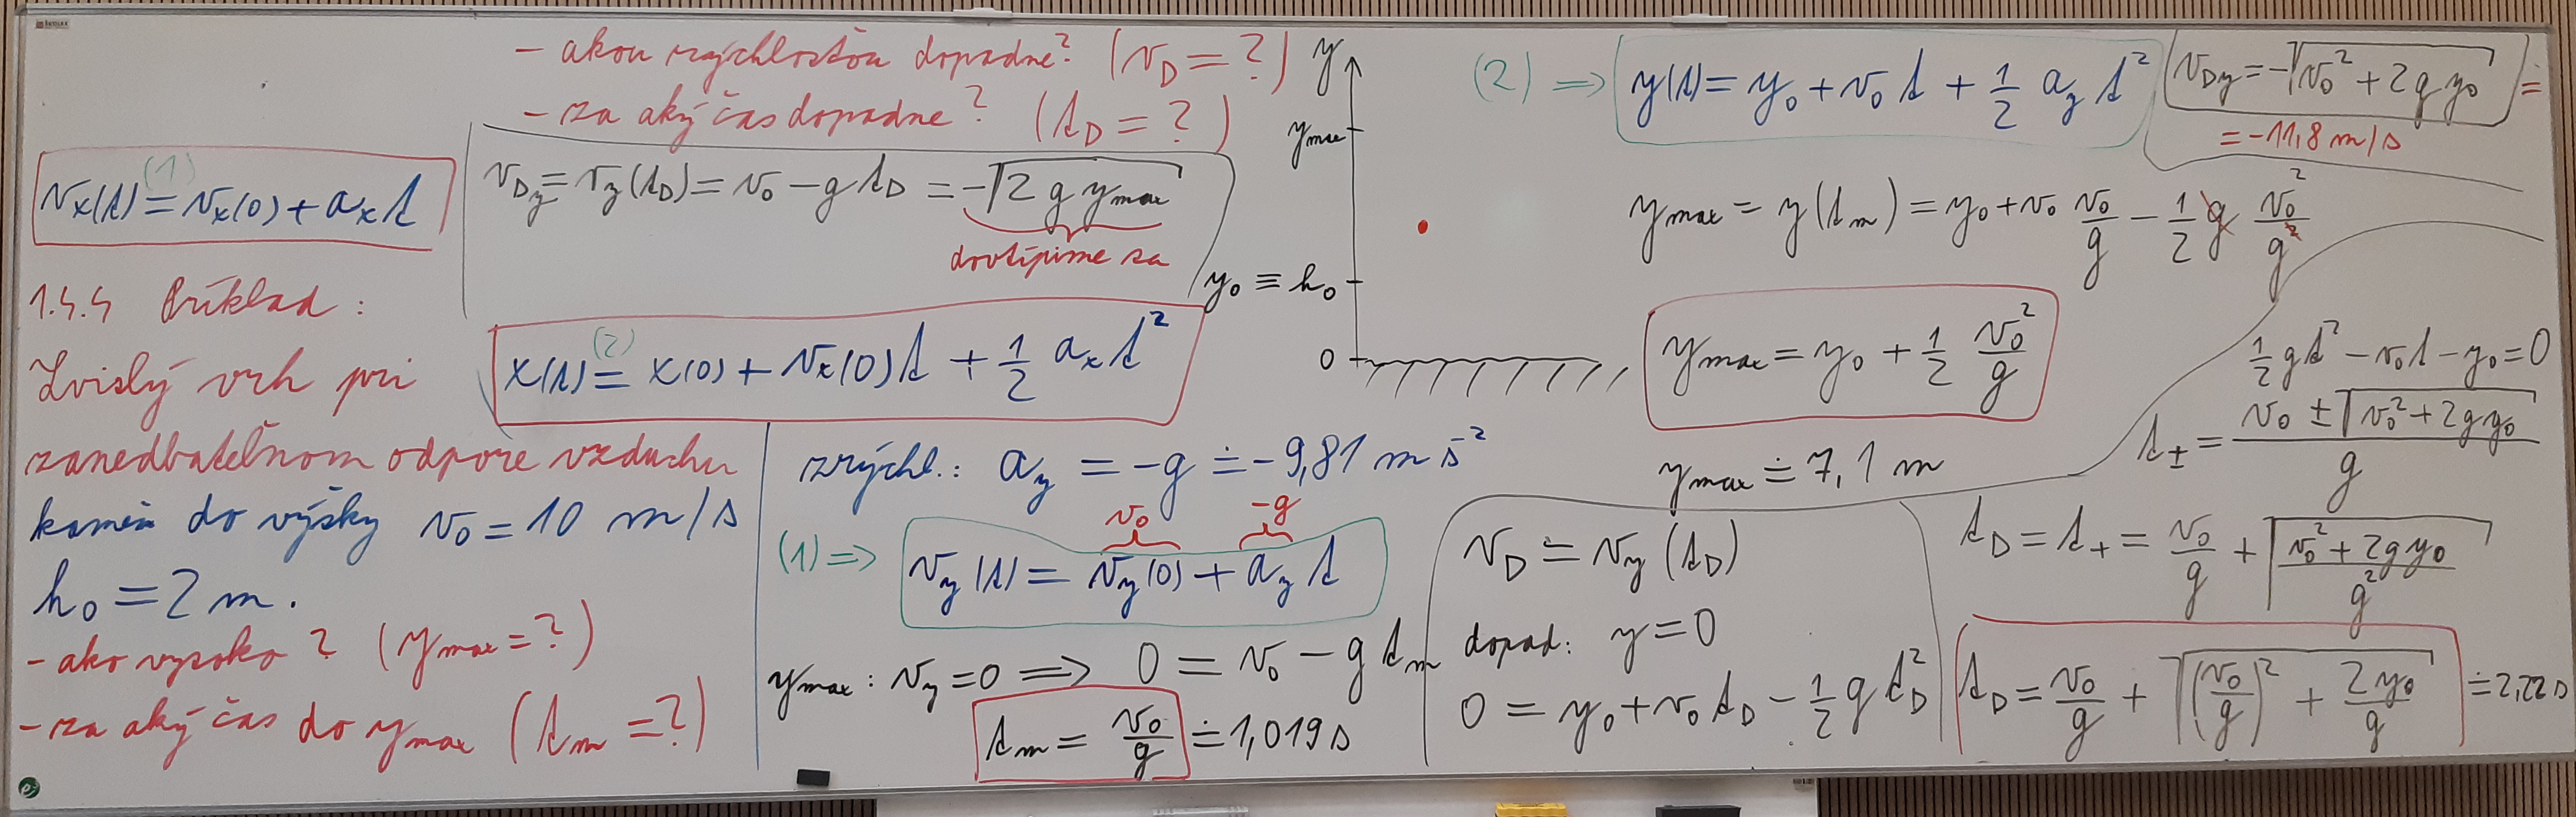 v_x(t) = v_x(0) + a_x t
(1)
1.4.4 Príklad:
Zvislý vrh pri
zanedbateľnom odpore vzduchu
kameň do výšky v_0 = 10 m/s
h_0 = 2 m.
- ako vysoko? (y_max = ?)
- za aký čas do y_max (t_m = ?)
- akou rýchlosťou dopadne? (v_D = ?)
- za aký čas dopadne? (t_D = ?)
v_Dy = v_y(t_D) = v_0 - g t_D = -√(2 g y_max)
dovtípime sa
x(t) = x(0) + v_x(0) t + 1/2 a_x t²
(2)
zrýchl.: a_y = -g ≐ -9,81 m s⁻²
v_0 -g
(1) ⇒ v_y(t) = v_y(0) + a_y t
y_max: v_y = 0 ⇒ 0 = v_0 - g t_m
t_m = v_0/g ≐ 1,019 s
y
y_max
y_0 ≡ h_0
0
(2) ⇒ y(t) = y_0 + v_0 t + 1/2 a_y t²
y_max = y(t_m) = y_0 + v_0 v_0/g - 1/2 g v_0²/g²
y_max = y_0 + 1/2 v_0²/g
y_max ≐ 7,1 m
v_D = v_y(t_D)
dopad: y = 0
0 = y_0 + v_0 t_D - 1/2 g t_D²
1/2 g t² - v_0 t - y_0 = 0
t_± = (v_0 ± √(v_0² + 2 g y_0))/g
t_D = t_+ = v_0/g + √((v_0² + 2 g y_0)/g²)
t_D = v_0/g + √((v_0/g)² + 2 y_0/g) ≐ 2,22 s
v_Dy = -√(v_0² + 2 g y_0) =
= -11,8 m/s